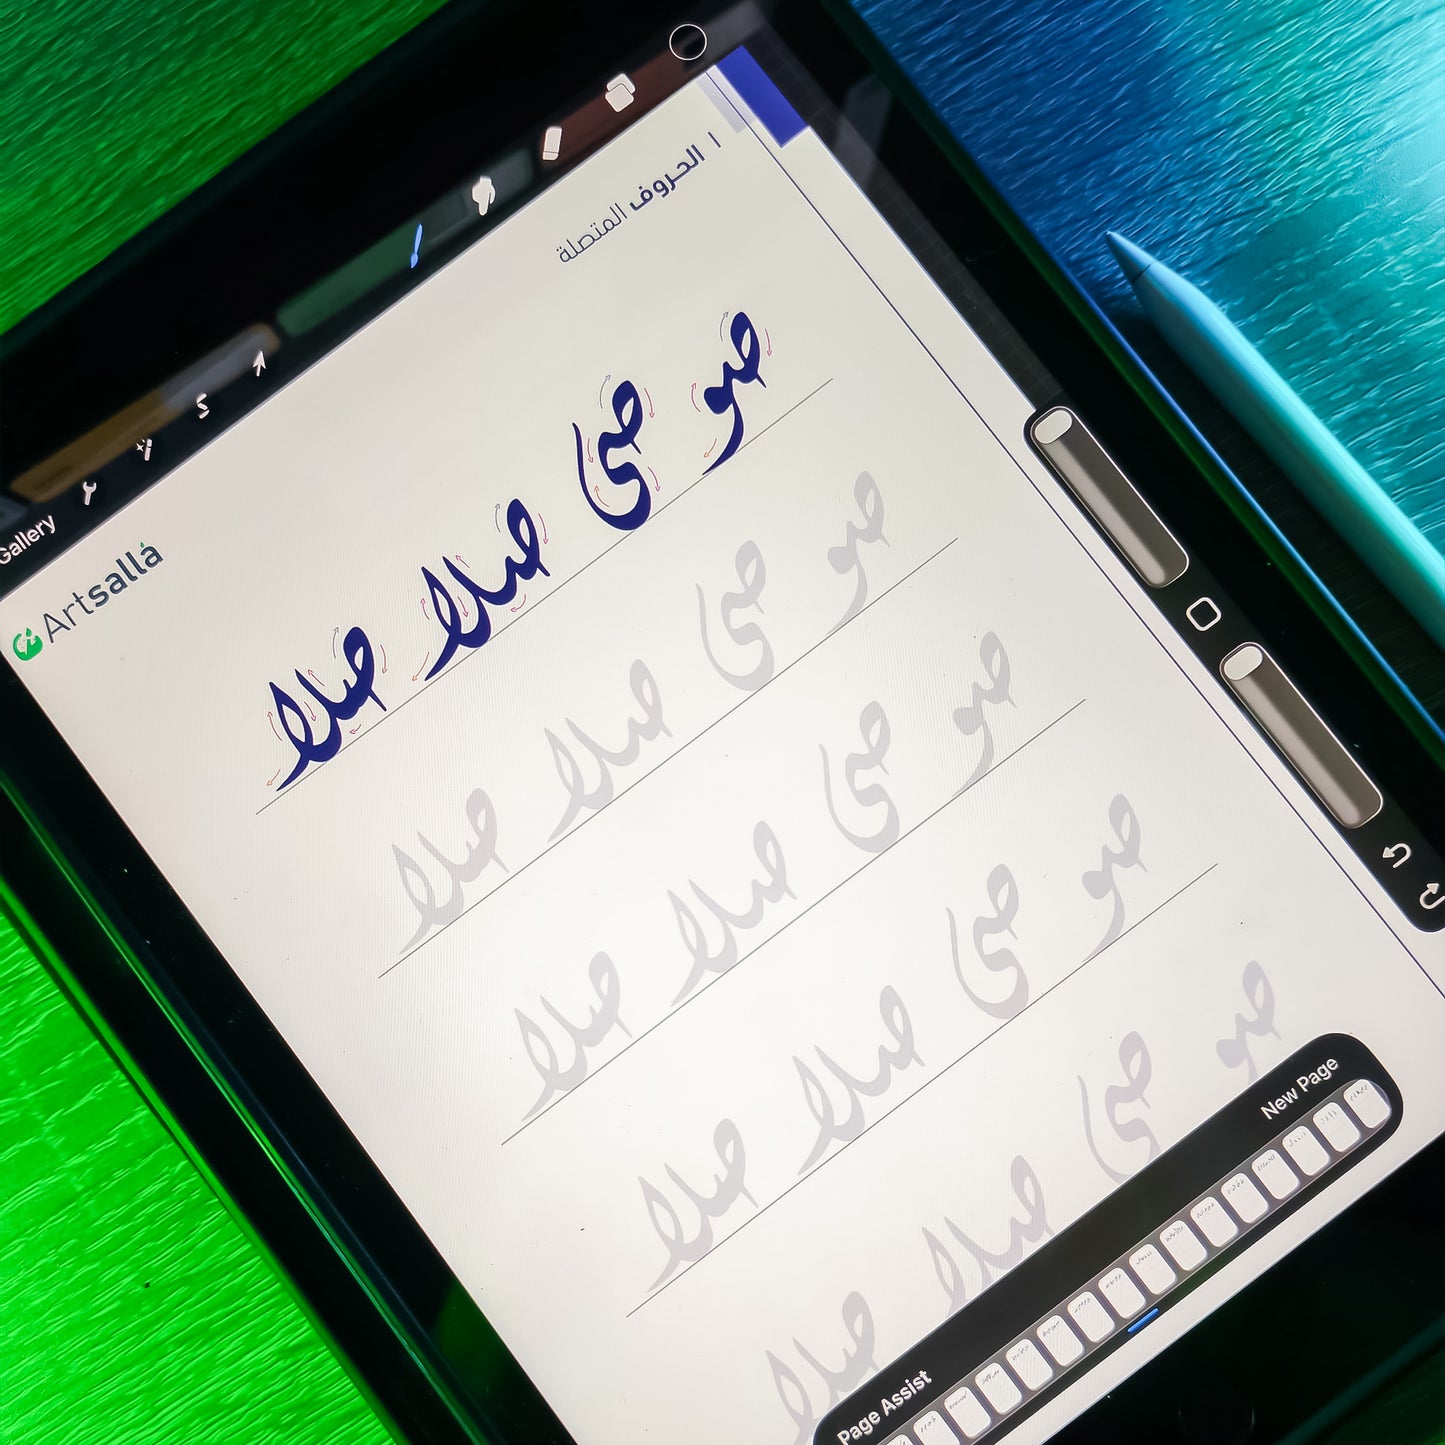 Gallery
Artsalla
| الحروف المتصلة
صو صى صلا صلا
صو صى صلا صلا
صو صى صلا صلا
صو صى صلا صلا
صو صى صلا صلا
Page Assist
New Page